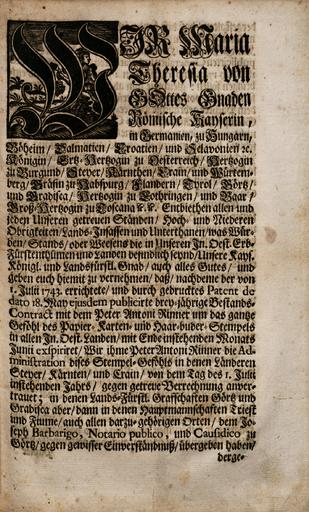 WJR Maria
Theresia von
GOttes Gnaden
Römische Kayserin,
in Germanien, zu Hungarn,
Böheim / Dalmatien / Croatien / und Sclavonien ꝛc.
Königin / Ertz-Hertzogin zu Oesterreich / Hertzogin
zu Burgund / Steyer / Kärnthen / Crain / und Würtem-
berg / Gräfin zu Habspurg / Flandern / Tyrol / Görtz /
und Gradisca / Hertzogin zu Lothringen / und Baar /
Groß-Hertzogin zu Toscana ꝛc. ꝛc. Entbiethen allen und
jeden Unseren getreuen Ständen / Hoch- und Niederen
Obrigkeiten / Lands-Insassen und Unterthanen / was Wür-
den / Stands / oder Weesens die in Unseren In. Oest. Erb-
Fürstenthümen und Landen befindlich seynd / Unsere Kays.
Königl. und Landsfürstl. Gnad / auch alles Gutes / und
geben euch hiemit zu vernehmen / daß / nachdeme der von
1. Julii 743. errichtete / und durch gedrucktes Patent de
dato 18. May ejusdem publicirte drey-jährige Bestands-
Contract mit dem Peter Antoni Rinner um das gantze
Geföhl des Papier- Karten- und Haar-puder-Stempels
in allen In. Oest. Landen / mit Ende instehenden Monats
Junii exspiriret / Wir ihme Peter Antoni Rinner die Ad-
ministration dises Stempel-Geföhls in denen Länderen
Steyer / Kärnten / und Crain / von dem Tag des 1. Julii
instehenden Jahrs / gegen getreue Verrechnung anver-
trauet ; in denen Lands-Fürstl. Graffschafften Görtz und
Gradisca aber / dann in denen Hauptmannschafften Triest
und Fiume / auch allen darzu-gehörigen Orten / dem Jo-
seph Barbarigo, Notario publico, und Causidico zu
Görtz / gegen gewisser Einverständnuß / übergeben haben /
derge-